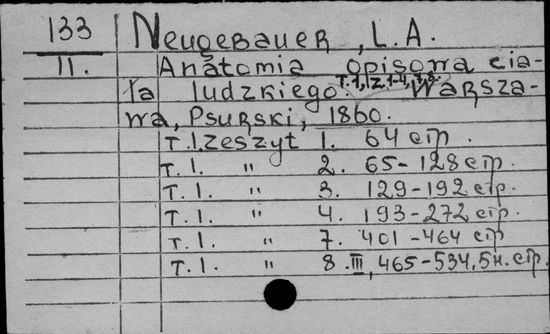 133 Neugebauer, L.A.
II. Anatomia opisowa cia-
ła ludzkiego. т.1, z.1-4,7,8. Warsza-
wa, Psurski, 1860.
т.1. zeszyt 1. 64 стр.
т.1. " 2. 65-128 стр.
т.1. " 3. 129-192 стр.
т.1. " 4. 193-272 стр.
т.1. " 7. 401-464 стр
т.1. " 8. III, 465-534, 5н. стр.